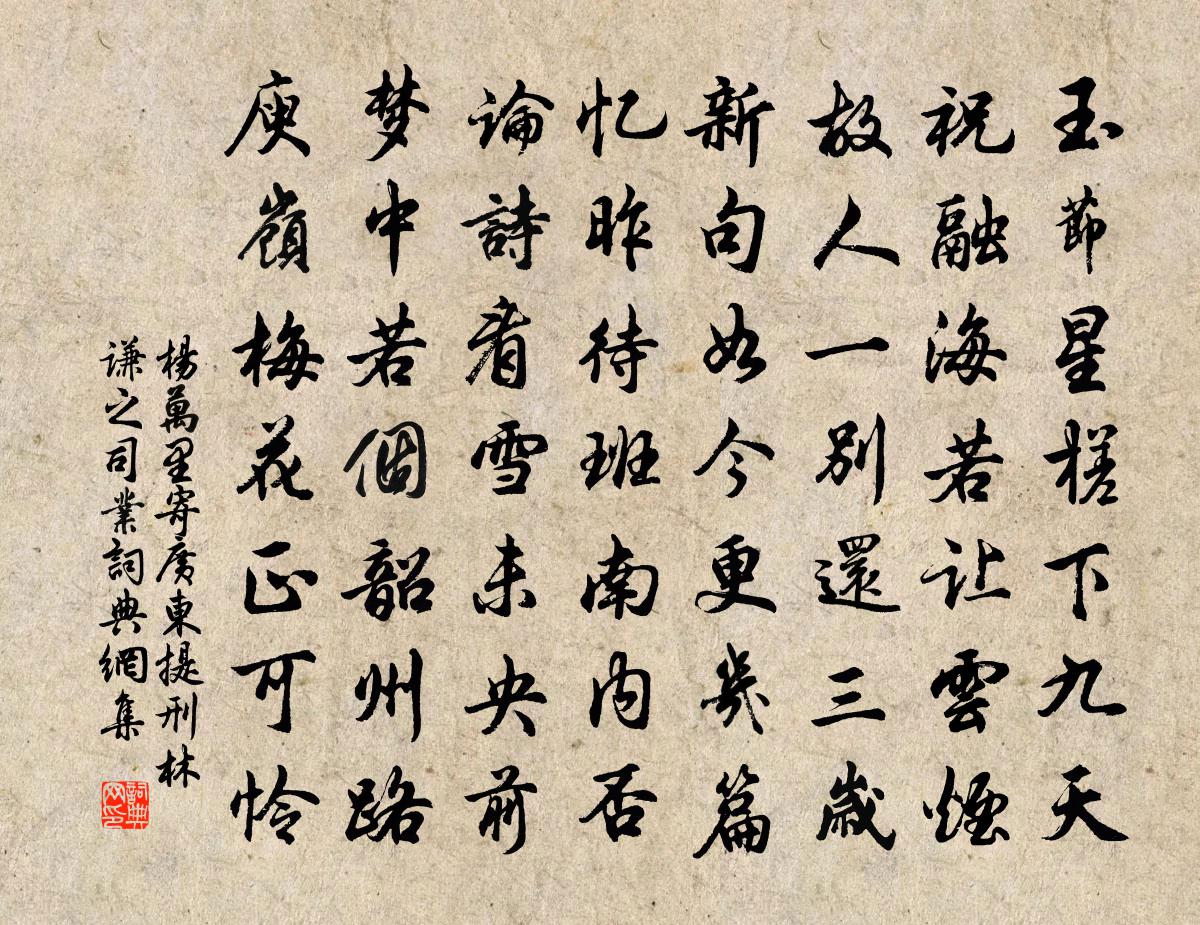 玉節星槎下九天
祝融海若让雲煙
故人一別還三歲
新句如今更幾篇
忆昨待班南内否
論詩看雪未央前
梦中若個韶州路
庾嶺梅花正可怜
楊萬里寄廣東提刑林
谦之司業詞典網集
詞典网印